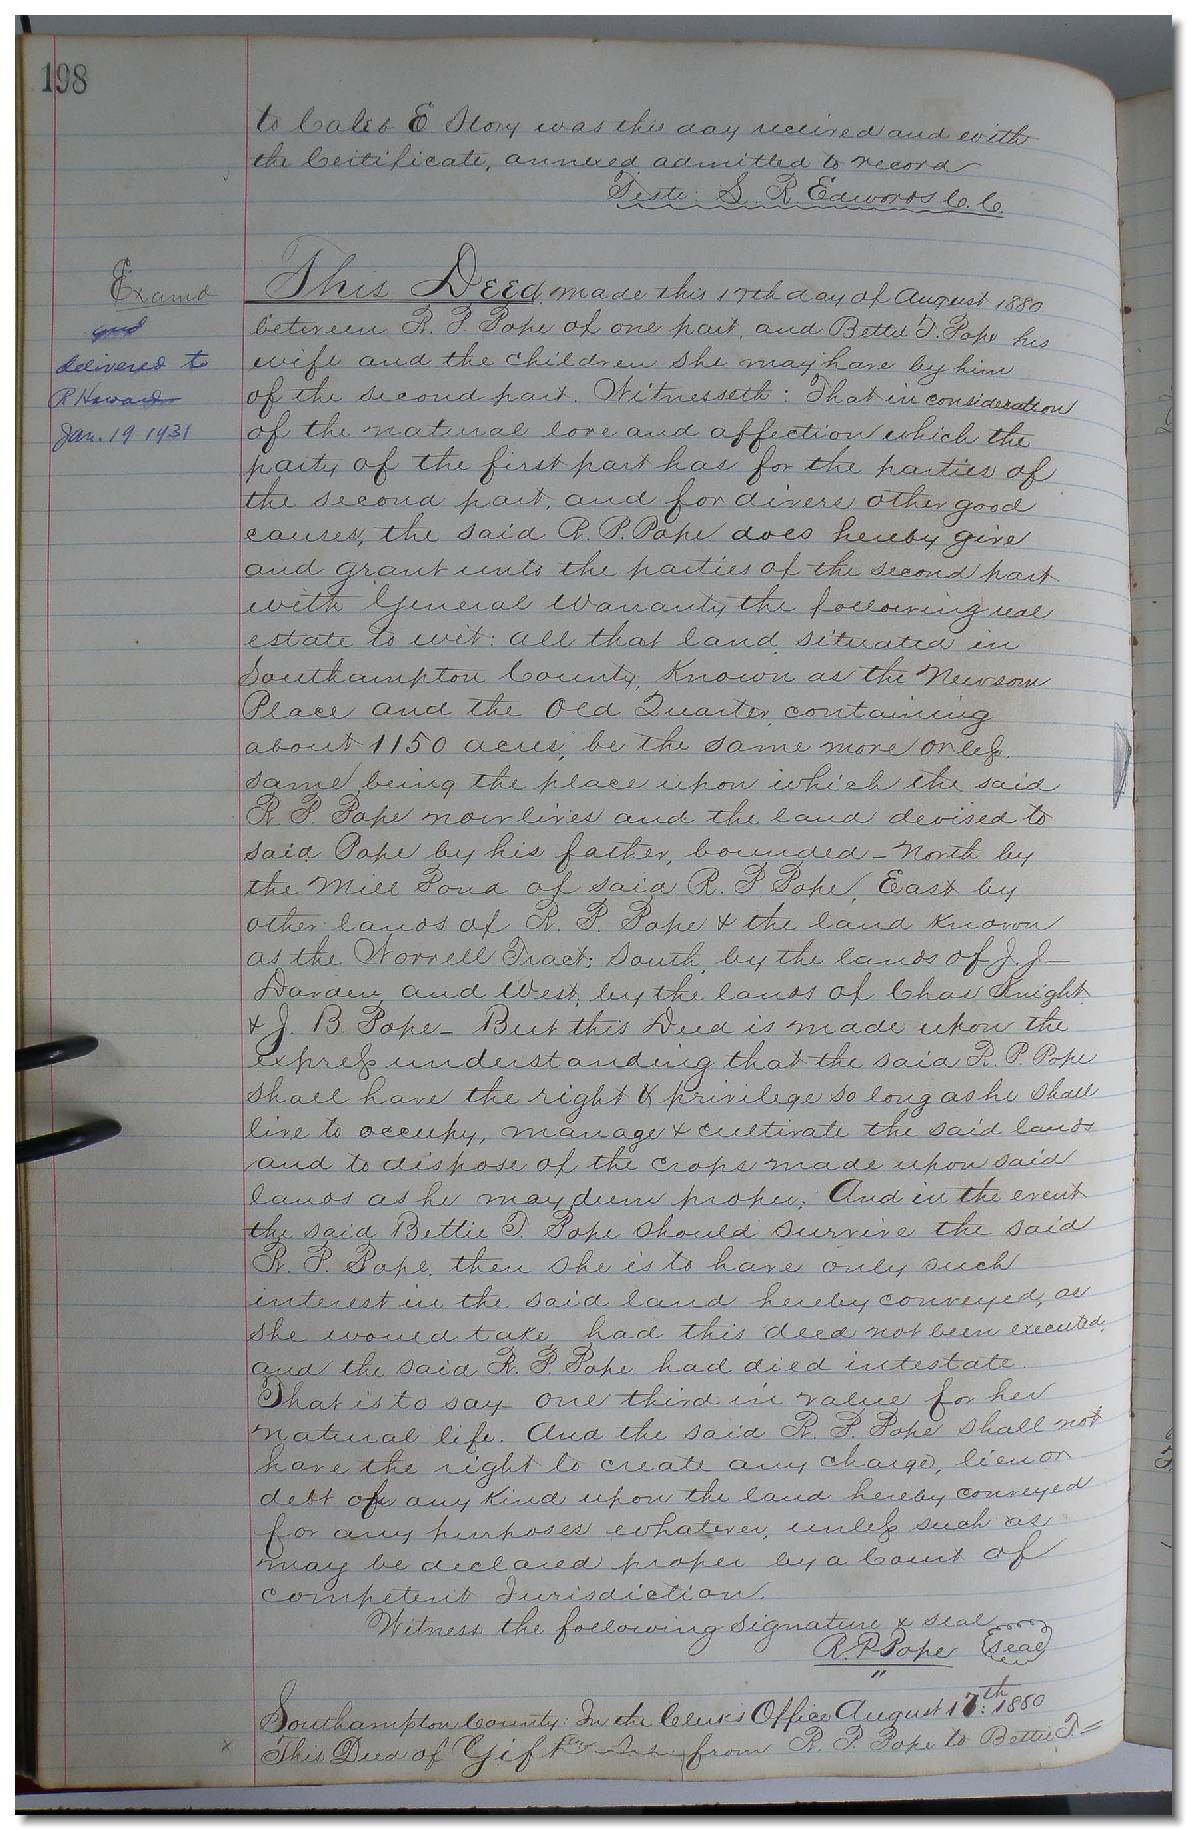 198
to Caleb E Story was this day received and with
the Certificate, annexed admitted to record
Teste: S. R. Edwards C. C.
Examd
and
delivered to
R Howard
Jan. 19 1931
This Deed, made this 17th day of August 1880
between R. P. Pope of one part, and Bettie T. Pope his
wife and the children she may have by him
of the second part. Witnesseth: That in consideration
of the natural love and affection which the
party of the first part has for the parties of
the second part, and for divers other good
causes, the said R. P. Pope does hereby give
and grant unto the parties of the second part
with General Warranty, the following real
estate to wit: all that land, situated in
Southampton County, Known as the Newsom
Place and the Old Quarter, containing
about 1150 acres, be the same more or less.
same being the place upon which the said
R. P. Pope now lives and the land devised to
said Pope by his father, bounded - North by
the Mill Pond of said R. P Pope, East by
other lands of R. P. Pope & the land known
as the Worrell Tract; South, by the lands of J. J-
Darden, and West, by the lands of Chas Knight
& J. B. Pope - But this Deed is made upon the
express understanding that the said R. P. Pope
shall have the right & privilege so long as he shall
live to occupy, manage & cultivate the said lands
and to dispose of the crops made upon said
lands as he may deem proper. And in the event
the said Bettie T. Pope should survive the said
R. P. Pope, then she is to have only such
interest in the said land hereby conveyed, as
she would take had this deed not been executed,
and the said R. P. Pope had died intestate.
That is to say one third in value for her
natural life. And the said R. P. Pope shall not
have the right to create any charge, lien or
debt of any kind upon the land hereby conveyed
for any purposes whatever, unless such as
may be declared proper by a Court of
competent Jurisdiction.
Witness the following signature & seal
R. P. Pope (Seal)
Southampton County: In the Clerk's Office August 17th: 1880
x This Deed of Gift from R. P. Pope to Bettie T=